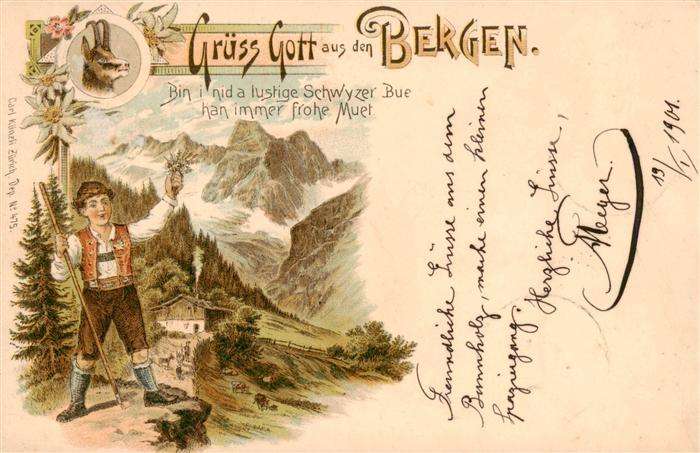 Grüss Gott aus den BERGEN.
Bin i nid a lustige Schwyzer Bue
han immer frohe Muet
Carl Künzli Zürich, Dep. No 475.
Freundliche Grüsse aus dem
Bannholz, mache einen kleinen
Spaziergang.
Herzliche Grüsse,
A. Meyer.
19/I. 1901.